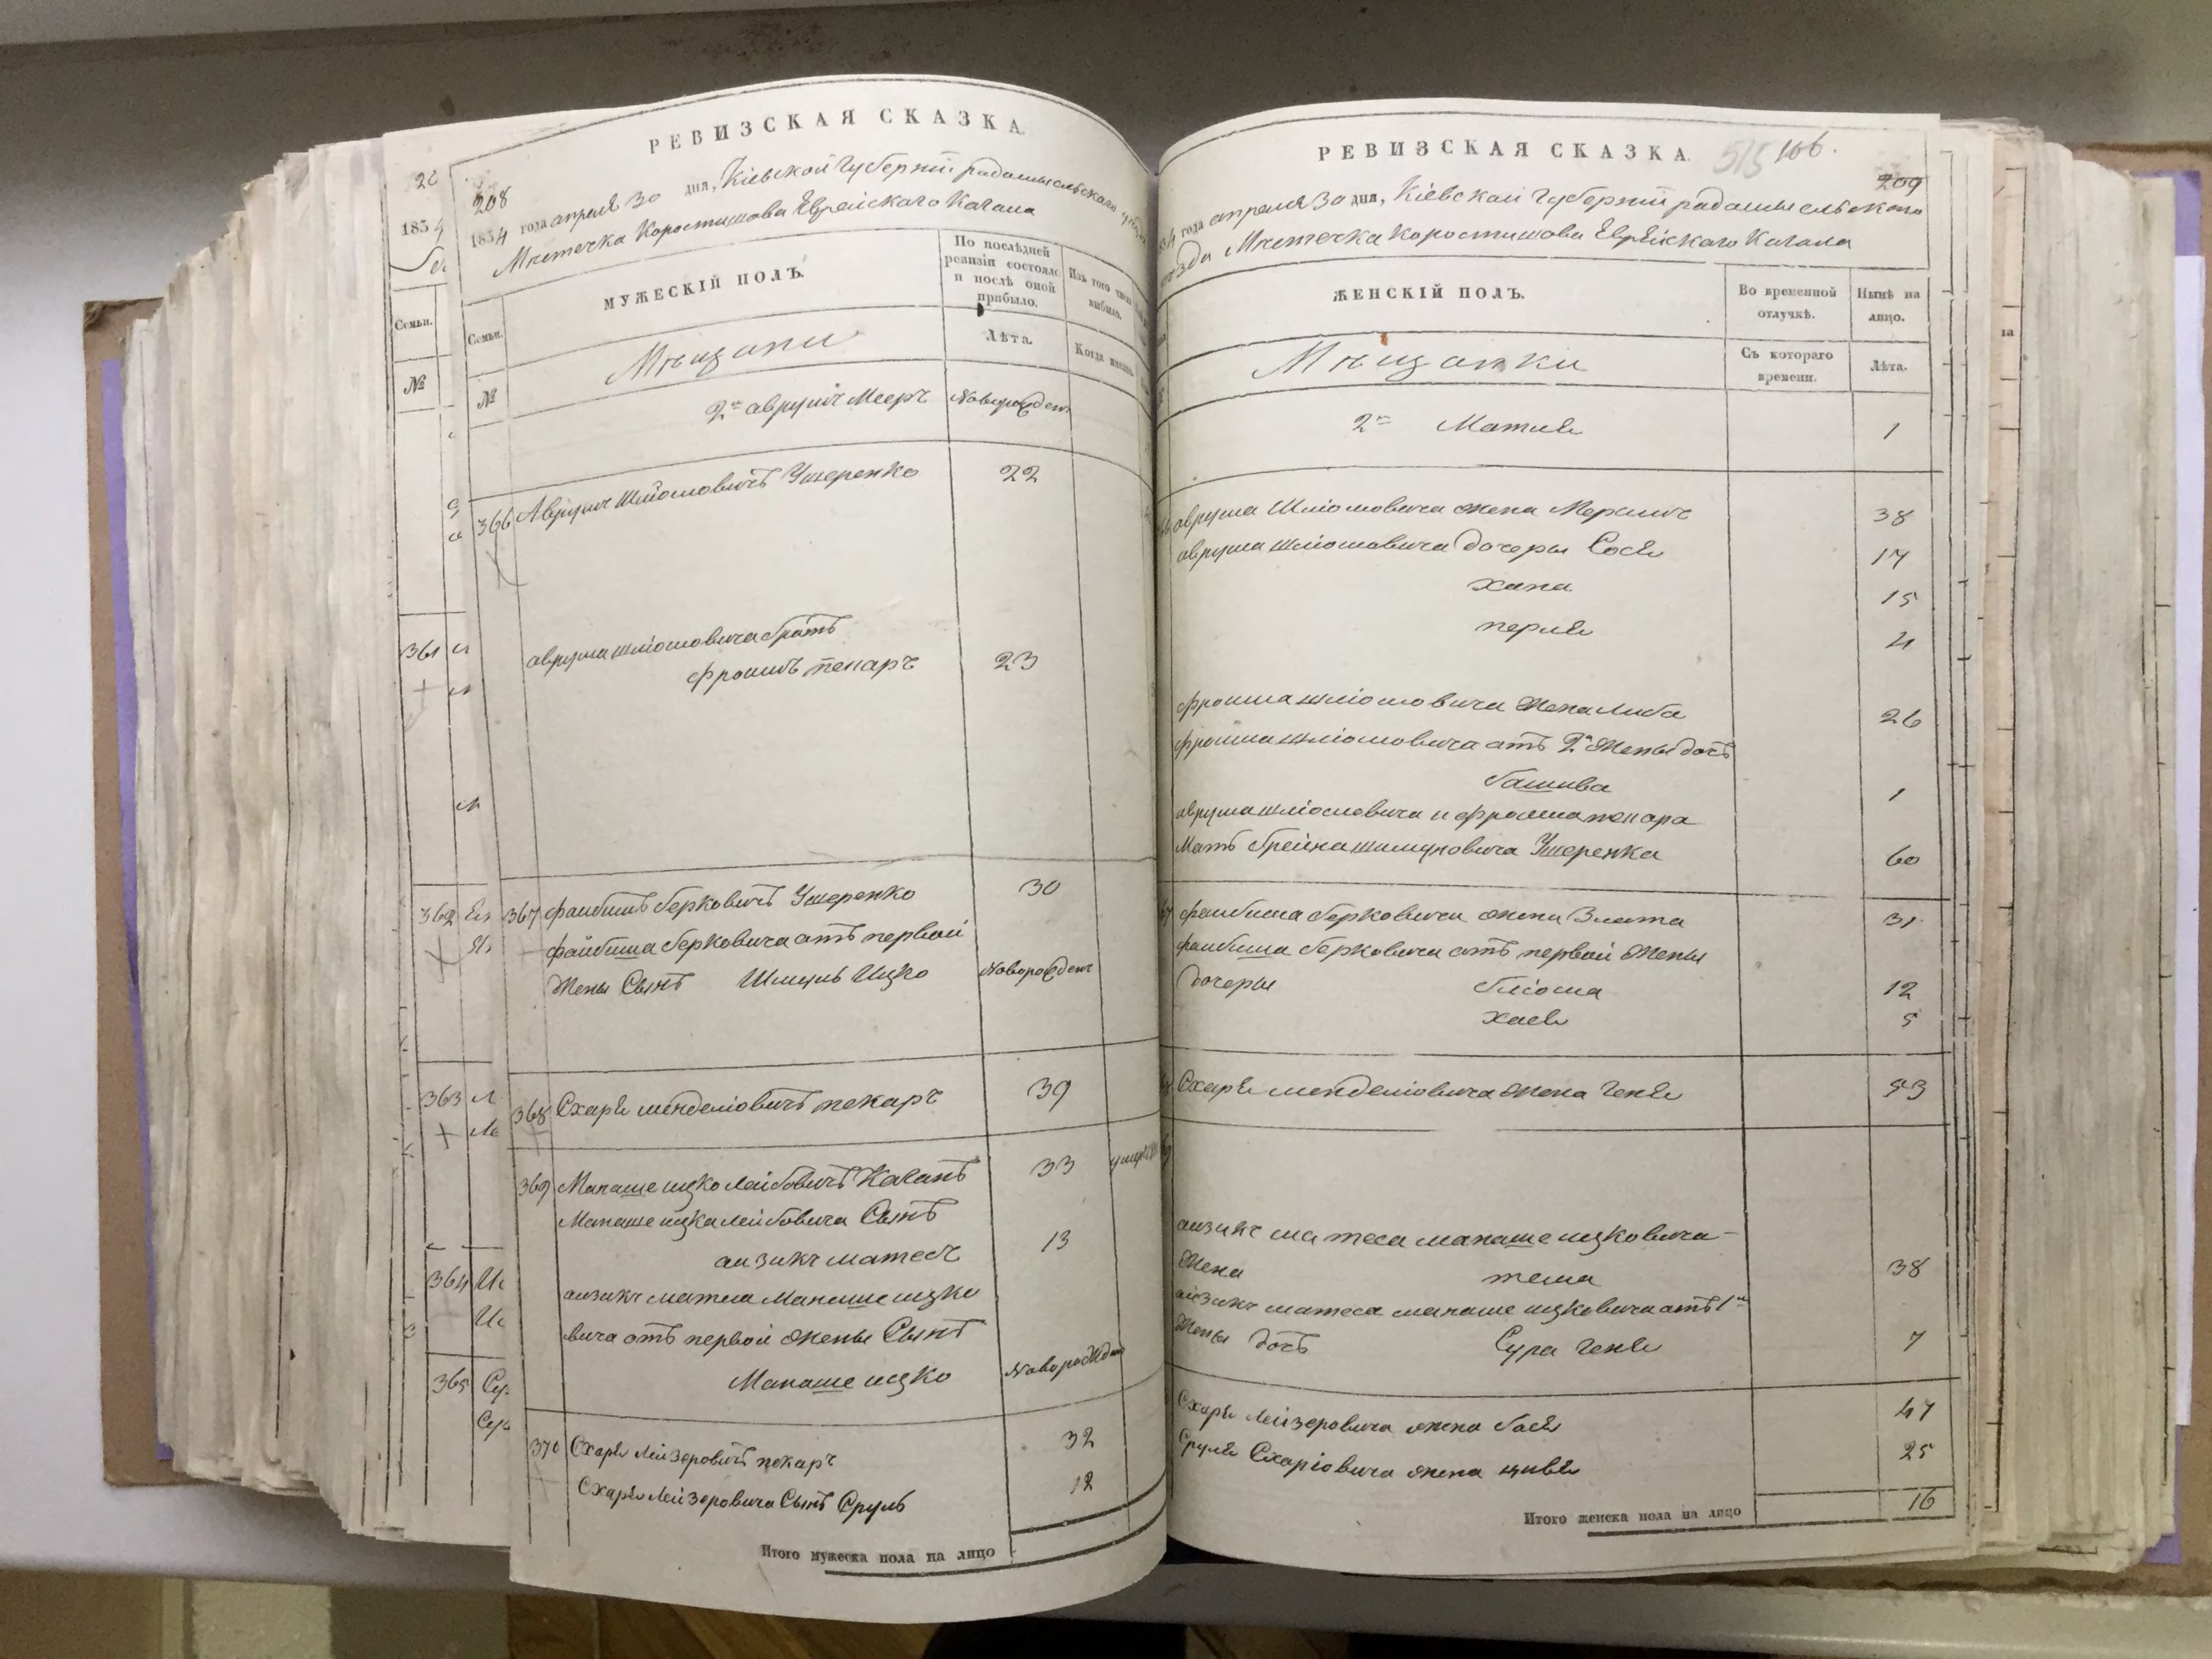 РЕВИЗСКАЯ СКАЗКА.
208
1834 года апреля 30 дня, Кіевской Губерніи радомысльского
Мѣстечка Коростишова Еврейскаго Кагала
Семьи.
МУЖЕСКІЙ ПОЛЪ.
По послѣдней ревизіи состояло и послѣ оной прибыло.
Изъ того числа выбыло.
№
Мѣщани
Лѣта.
Когда именно.
2й аврумъ Мееръ Новорожден
366 Аврумъ Шліомовичъ Ушеренко 22
аврума шліомовича братъ
фроимъ пекаръ 23
367 фаибишъ берковичъ Ушеренко 30
файбиша берковича отъ первой
Жены Сынъ Шмуль Ицко Новорожден
368 Схаря менделіовичъ пекаръ 39
369 Манаше ицко лейбовичъ Каганъ 33
Манаше ицка лейбовича Сынъ
аизикъ матесъ 13
аизикъ матеса Манаше ицко
вича отъ первой жены Сынъ
Манаше ицко Новорожден
370 Схаря Лейзеровичъ пекаръ 32
Схаря Лейзеровича Сынъ Сруль 12
Итого мужеска пола на лицо
1834
Семьи.
№
361
362
363
364
365
РЕВИЗСКАЯ СКАЗКА.
515 106.
209
года апреля 30 дня, Кіевской Губерніи радомысльского
Мѣстечка Коростишова Еврейскаго Кагала
ЖЕНСКІЙ ПОЛЪ.
Во временной отлучкѣ.
Нынѣ на лицо.
Мѣщанки
Съ котораго времени.
Лѣта.
2я Матля 1
аврума Шліомовича жена Мерьимъ 38
аврума шліомовича дочеры Сося 17
хана 15
перля 4
фроима шліомовича Жена Либа 26
фроима шліомовича отъ 2й Жены дочь
башива 1
аврума шліомовича и фроима пекара
Мать брейна шмуловича Ушеренка 60
фаибиша берковича жена Злата 31
фаибиша берковича отъ первой Жены
дочеры бліома 12
хая 5
Схаря менделіовича Жена Геня 53
аизикъ матеса манаше ицковича
Жена тема 38
аизикъ матеса манаше ицковича отъ 1й
Жены дочь Сура Геня 7
Схаря Лейзеровича жена бася 47
Сруля Схаріовича жена цивя 25
Итого женска пола на лицо 16